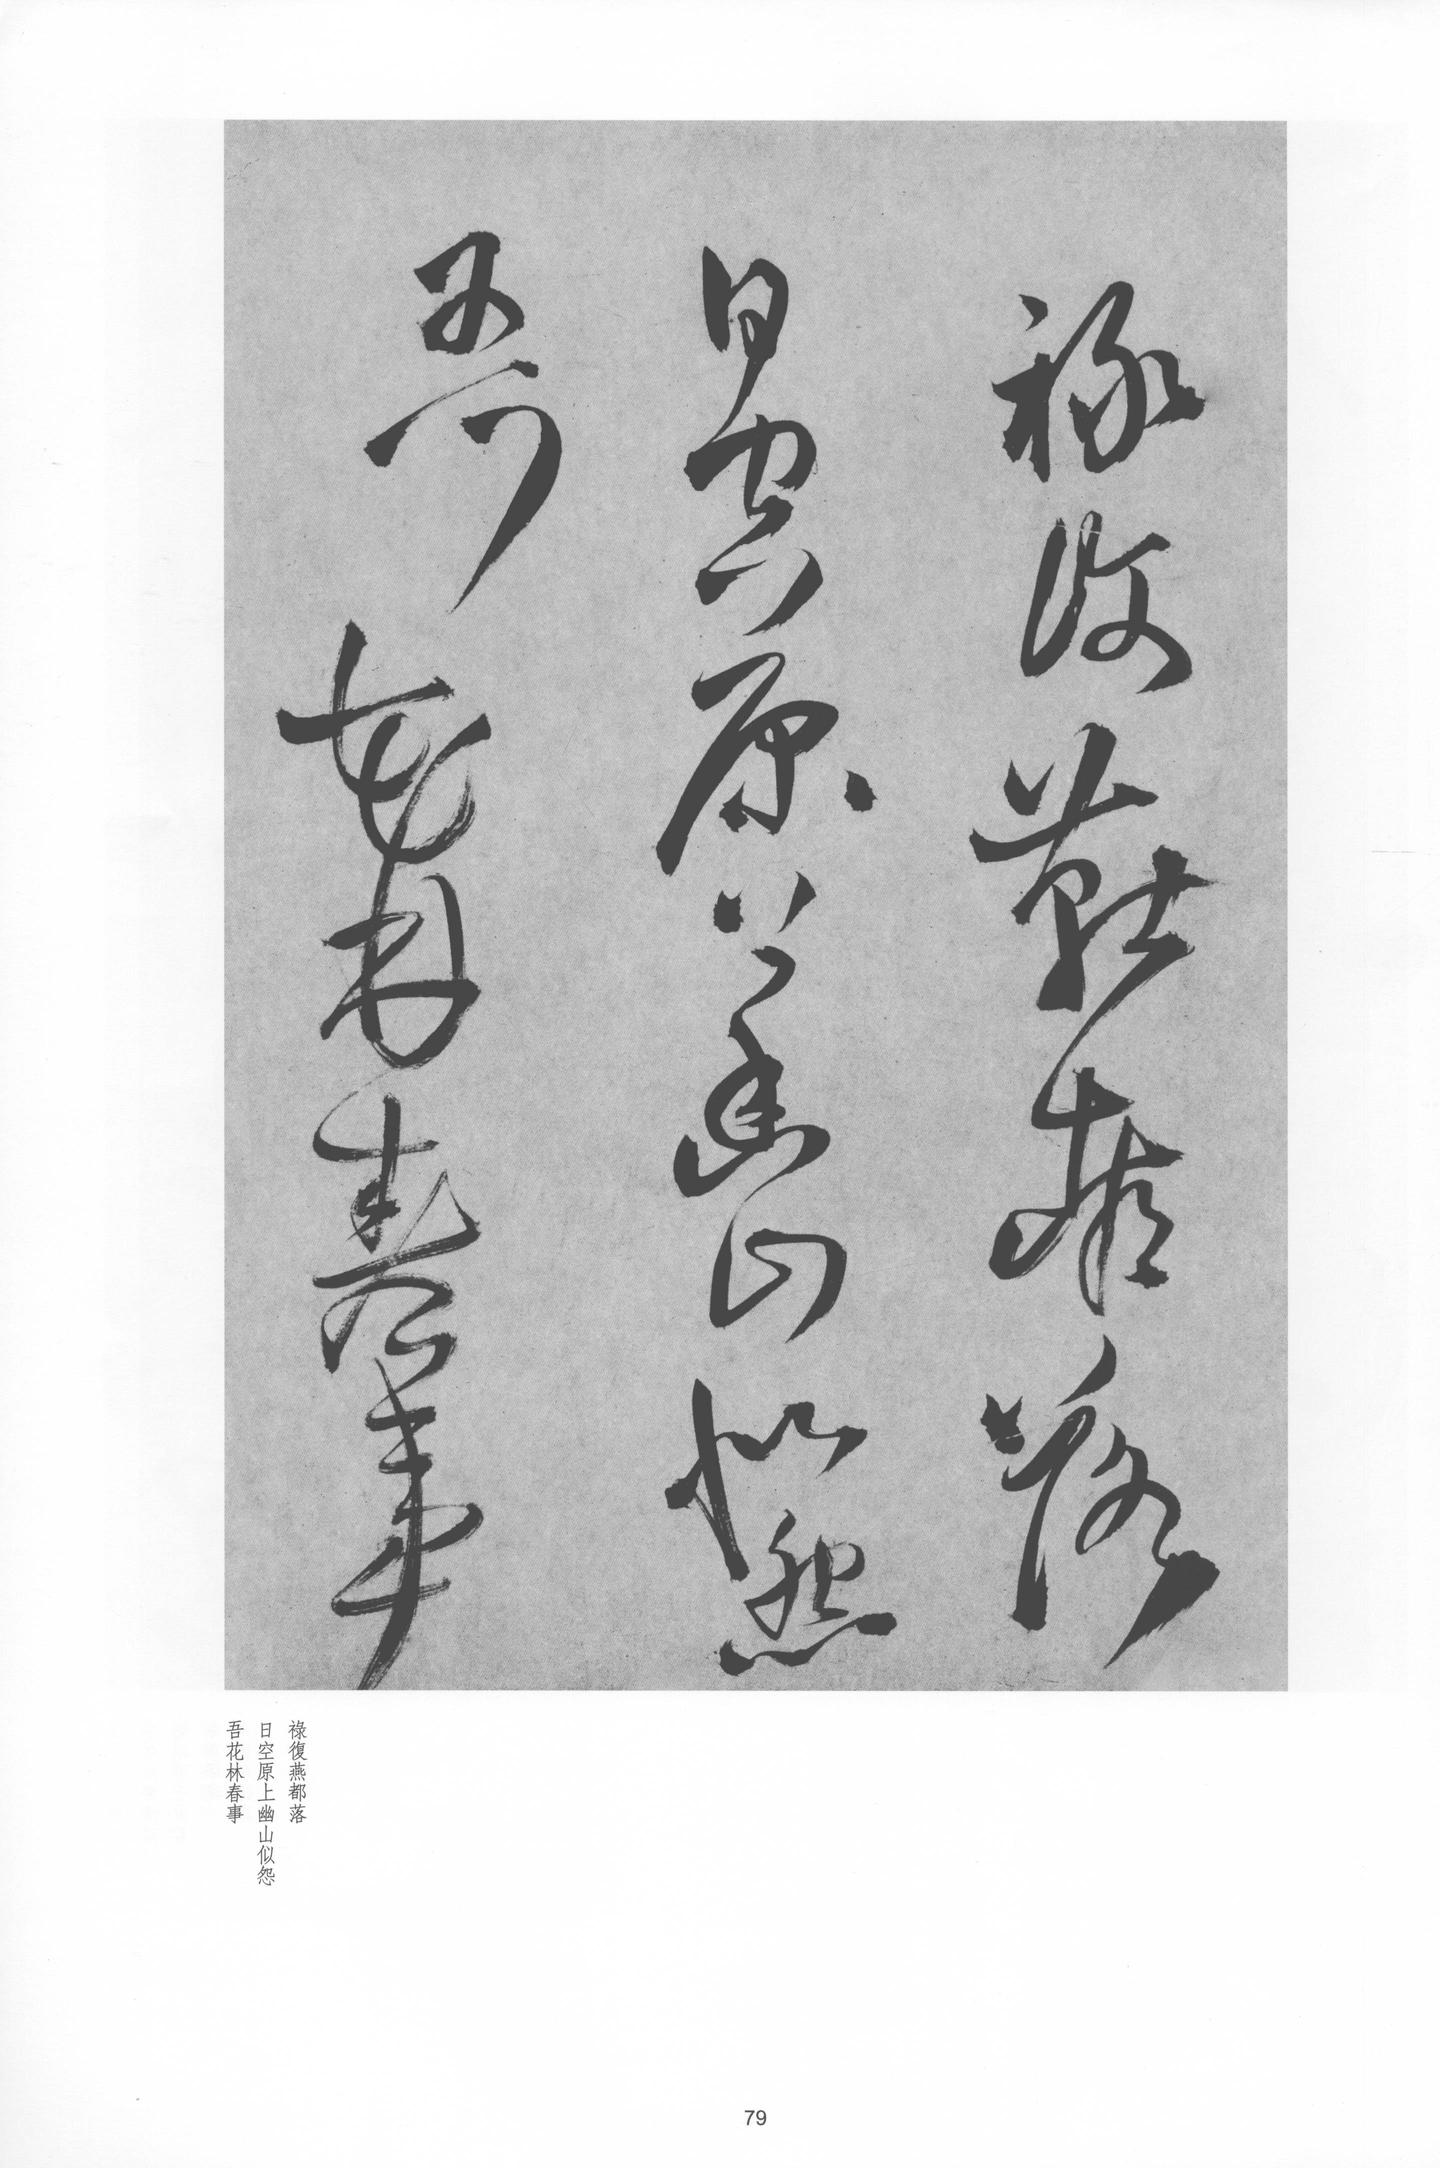 祿復燕都落
日空原上幽山似怨
吾花林春事
祿復燕都落
日空原上幽山似怨
吾花林春事
79